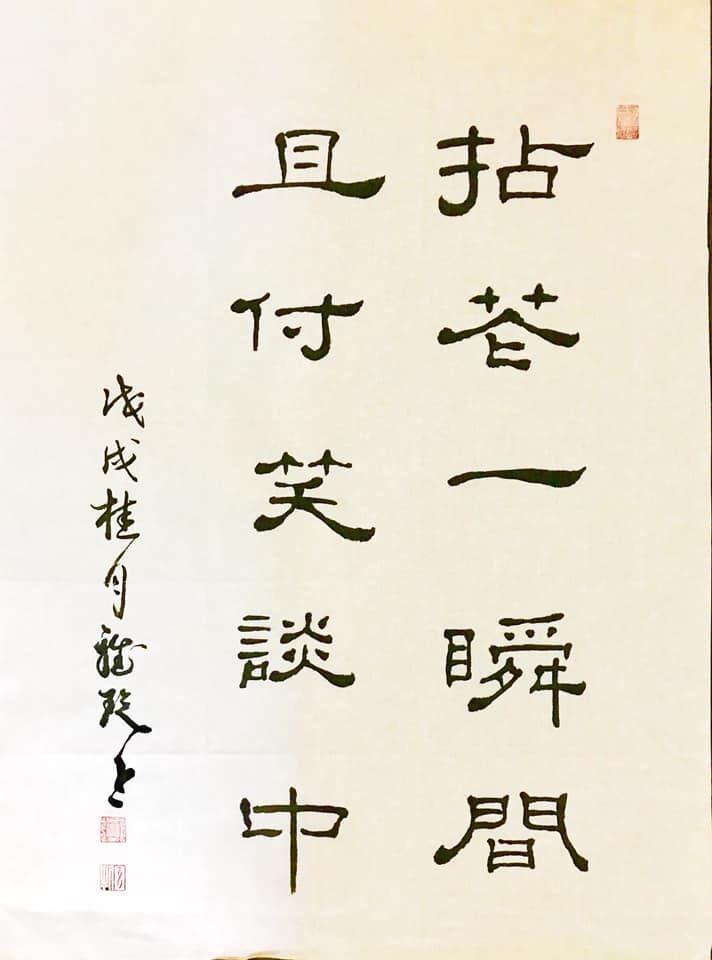 拈花一瞬間
且付笑談中
戊戌桂月